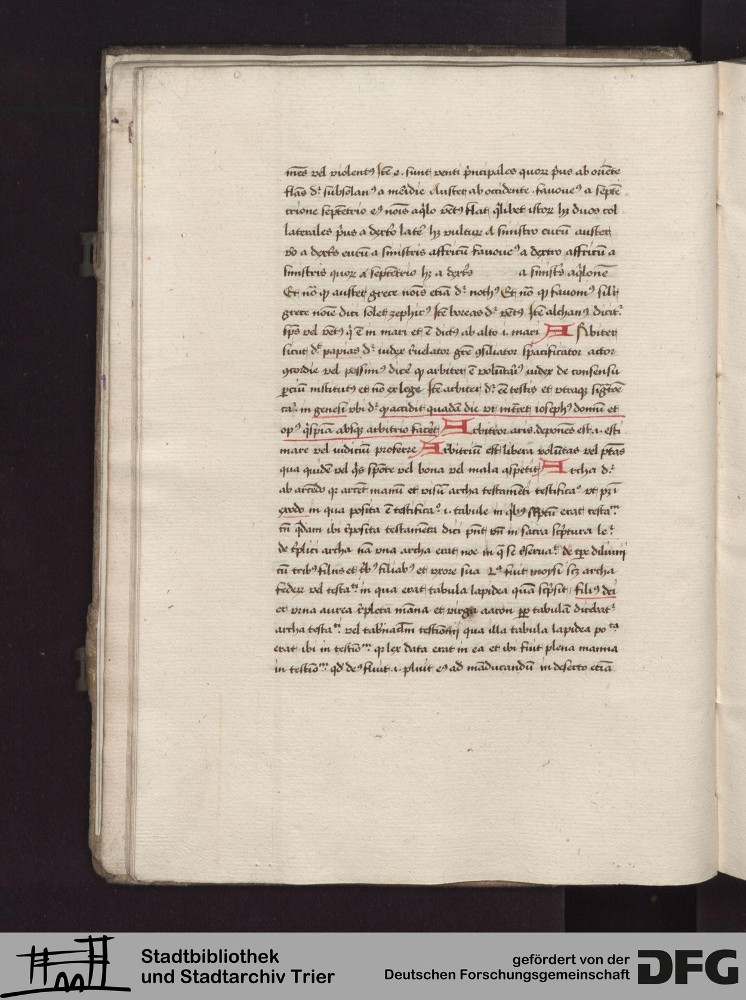 mes vel violentꝰ Itē e. sunt venti pͥncipales quorꝝ pͥus ab oriēte
flās dꝛ subsolanꝰ a meͥdie Auster ab occidente . favoueꝰ a septē
trione septētrio eꝰ noīs aqͥlo vētꝰ flat qͥlibet istorꝝ hꝫ duos col
laterales pͥus a dextͦ latē hꝫ vultur A sinistro eurū auster
vͦo a dextͥs eurū a sinistris affricū favoueꝰ a dextro affricū a
sinistris quorꝝ a septētrio hꝫ a dextͥs a sinistͥs aqͥlonē
Et nō qꝫ auster grece noīs etiā dꝛ nothꝰ Et nō qꝫ favoniꝰ silͥr
grece noīe dici solet zephirꝰ Itē boreas dꝛ vētꝰ Itē alchanꝰ dicitꝛ
spūs vel vētꝰ qͥ ē in mari et ē dictꝰ ab alto .i. mari Arbiter
sicut dꝛ papias dꝛ iudex rͥuelator gͥte ꝯsiliator spacificator actor
ꝯcordie vel possimꝰ dicē qꝫ arbiter ē volūtariꝰ iudex de consensu
ꝑciū institutꝰ et nō ex lege Itē arbiter dꝛ ēē testis et utraqꝫ sigͥtōē
caꝛ in genesi ubi dꝛ qꝫ accidit quadā die ut intͥret iosephꝰ domū et
opꝰ qͥspiā absqꝫ arbitrio facēt Arbitror aris. deponēs est .i. esti
mare vel iudiciū proferre Arbitriū est libera volūtas vel ptās
qua quidē vel qͥs spōte vel bona vel mala aspetit Archa dꝛ
ab arcēdo qꝛ arcet manū et visū archa testamēti testificaͦ ut pꝫ ī
exodo in qua posita ē testificaͦ .i. tabule in qͥbꝰ scͥptū erat testaᵐ
tn̄ qͥdam ibi rͥposita testamēta dici pn̄t vn̄ in sacra scͥptura leꝛ
de tͥplici archa nā una archa erat noe in qͣ se ꝯservaͭ de tꝑe diluvii
cū tribꝰ filiis et tͥbꝰ filiabꝰ et uxore sua 2ᵃ fuit moysi scꝫ archa
federis vel testaᵗⁱ in qua erat tabula lapidea quā scͥpsit filiꝰ dei
et vrna aurea rͥpleta māna et virga aaron ꝓpͭ tabulā dicebatꝛ
archa testaᵗⁱ vel tabͥnaclm̄ testīonii qua illa tabula lapidea poᵗᵃ
erat ibi in testīoᵐ qꝛ lex data erat in ea et ibi fuit plena manna
in testīoᵐ qd deꝰ fluit .i. pluit eꝰ ad māducandū in deserto etiā
Stadtbibliothek
und Stadtarchiv Trier
gefördert von der
Deutschen Forschungsgemeinschaft
DFG